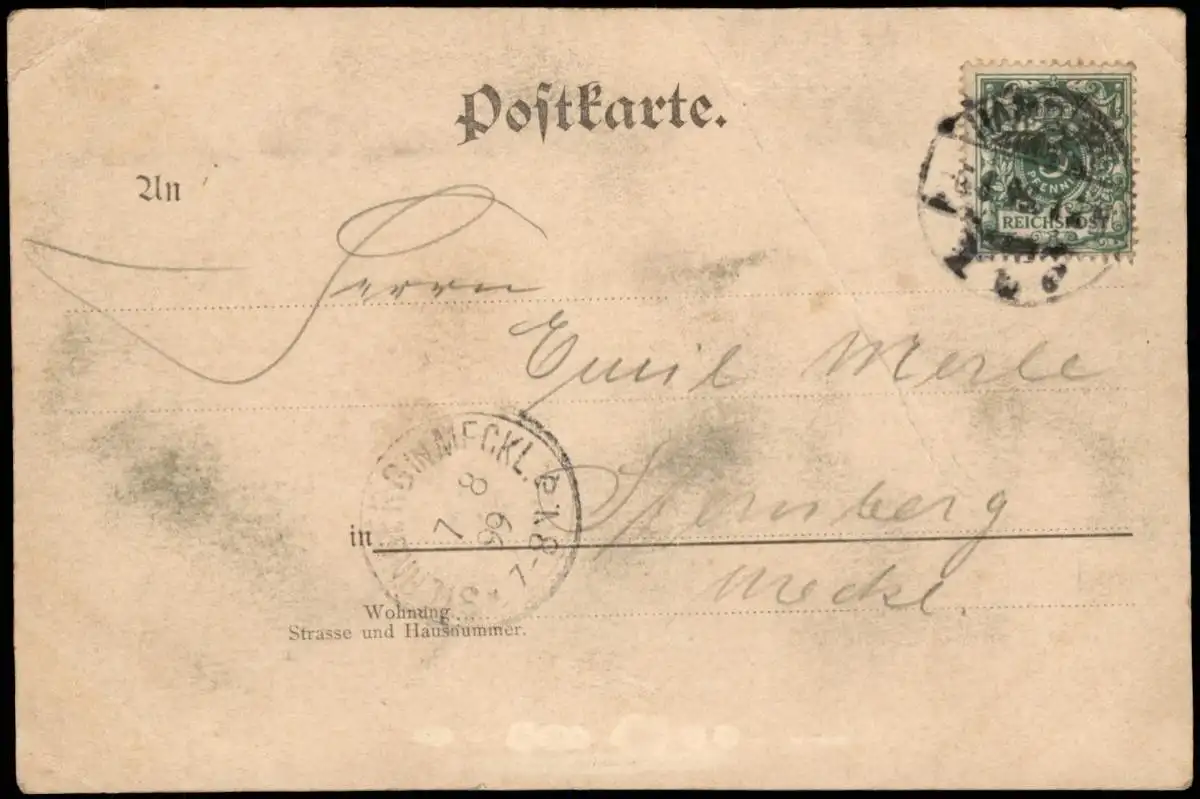 Postkarte.
An
Herrn
Emil Merle
in Sternberg
Meckl.
Wohnung
Strasse und Hausnummer.
5
PFENNIG
REICHSPOST
STERNBERG IN MECKL.
7 8
99
7-8 N